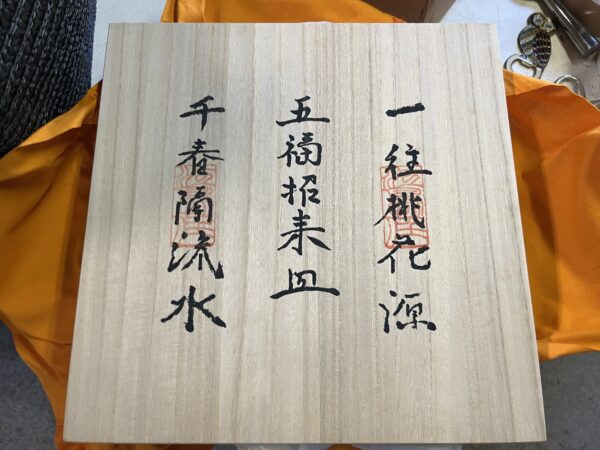 一往桃花源
五福招来皿
千春隔流水